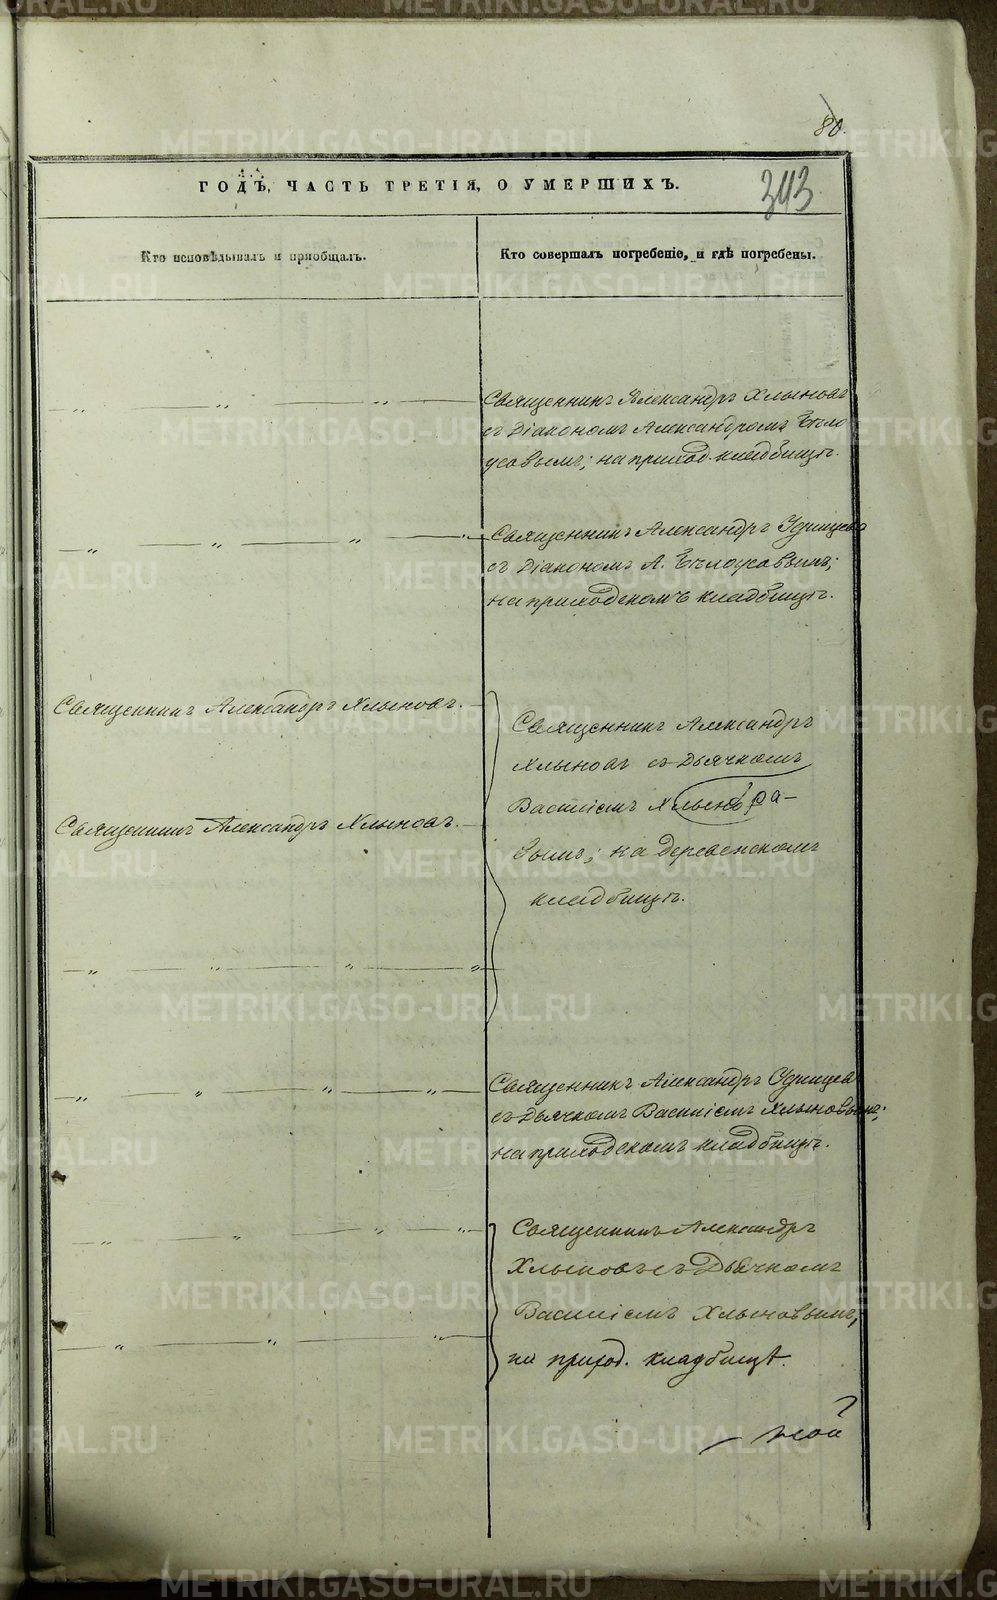 80.
343
ГОДЪ, ЧАСТЬ ТРЕТІЯ, О УМЕРШИХЪ.
Кто исповѣдывалъ и приобщалъ.
Кто совершалъ погребеніе, и гдѣ погребены.
Священникъ Александръ Хлыновъ
съ Діакономъ Александромъ Бѣло
усовымъ; на приход. кладбищѣ.
Священникъ Александръ Удинцевъ
съ Діакономъ А. Бѣлоусовымъ;
на приходскомъ кладбищѣ.
Священникъ Александръ Хлыновъ.
Священникъ Александръ Хлыновъ.
Священникъ Александръ
Хлыновъ съ Дьячкомъ
Василіемъ
вымъ; на деревенскомъ
кладбищѣ.
Священникъ Александръ Удинцевъ
съ Дьячкомъ Василіемъ Хлыновымъ;
на приходскомъ кладбищѣ.
Священникъ Александръ
Хлыновъ съ Дьячкомъ
Василіемъ Хлыновымъ;
на приход. кладбищѣ.
METRIKI.GASO-URAL.RU